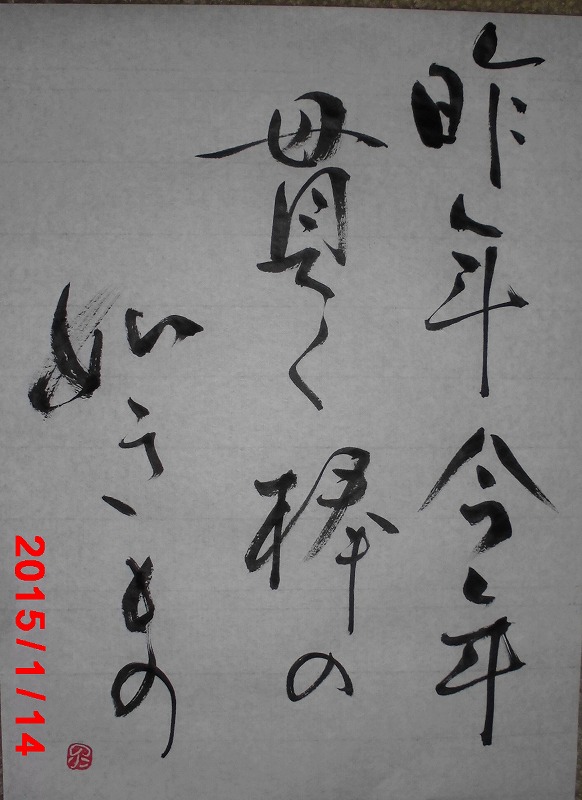 昨年今年
貫く棒の
如きもの
2015/1/14